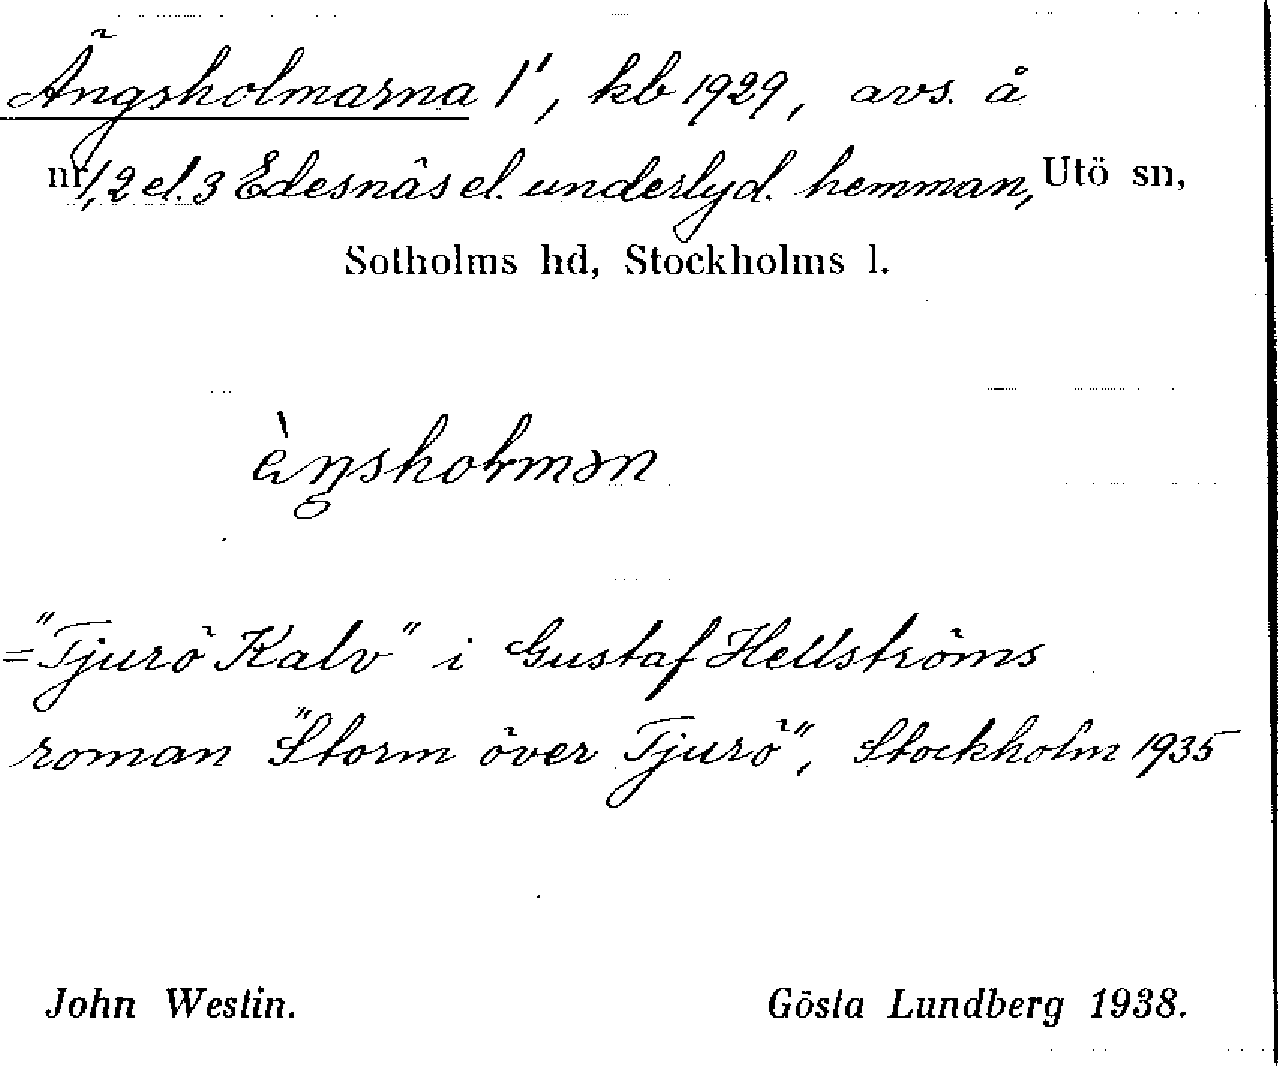 Ängsholmarna 1', kb 1929, avs. å
nr 1, 2 el. 3 Edesnäs el. underlyd. hemman, Utö sn,
Sotholms hd, Stockholms l.
èŋsholmən
="Tjurö Kalv" i Gustaf Hellströms
roman "Storm över Tjurö", Stockholm 1935
John Westin. Gösta Lundberg 1938.